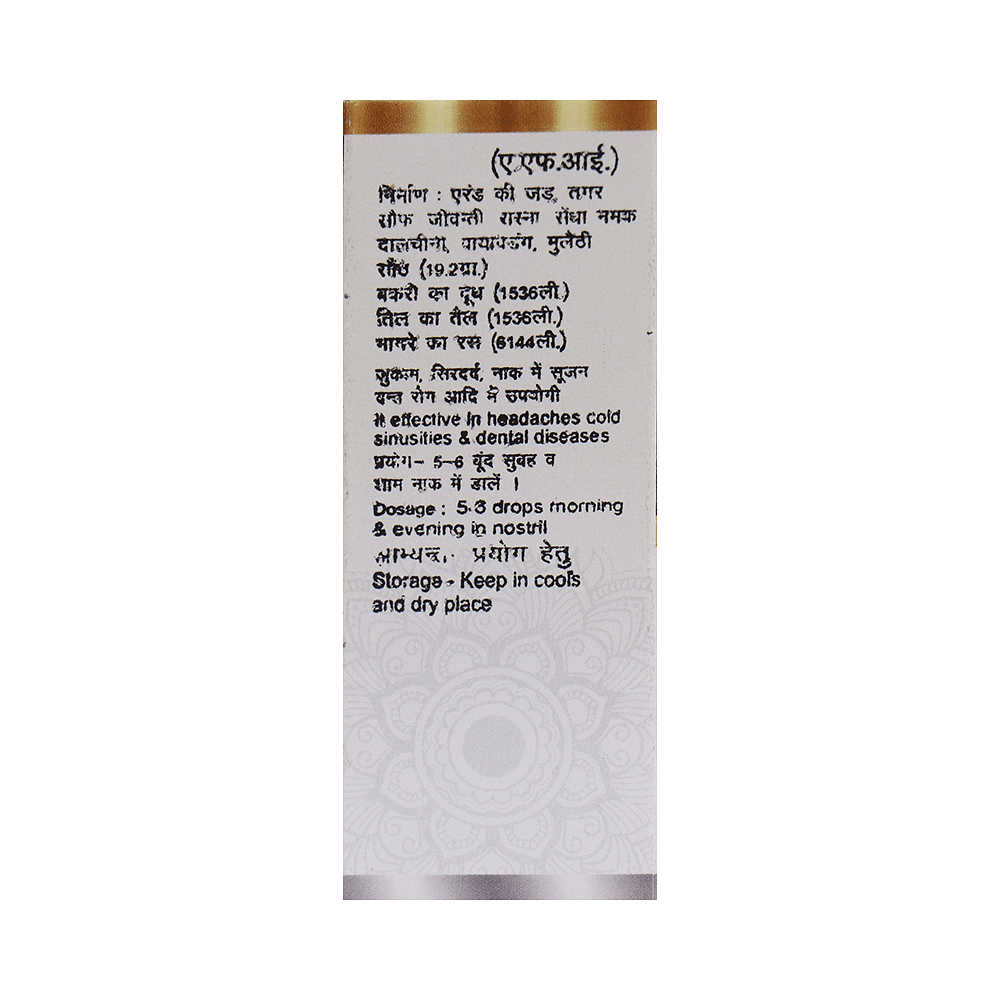 (ए.एफ.आई.)
निर्माण : एरंड की जड़, तगर
सौंफ जीवन्ती रास्ना सेंधा नमक
दालचीनी, वायविडंग, मुलैठी
सोंठ (19.2ग्रा.)
बकरी का दूध (1536ली.)
तिल का तैल (1536ली.)
भांगरे का रस (6144ली.)
जुकाम, सिरदर्द, नाक में सूजन
दन्त रोग आदि में उपयोगी
It effective in headaches cold
sinusities & dental diseases
प्रयोग– 5–6 बूंद सुबह व
शाम नाक में डालें ।
Dosage : 5-6 drops morning
& evening in nostril
प्रयोग हेतु
Storage - Keep in cools
and dry place